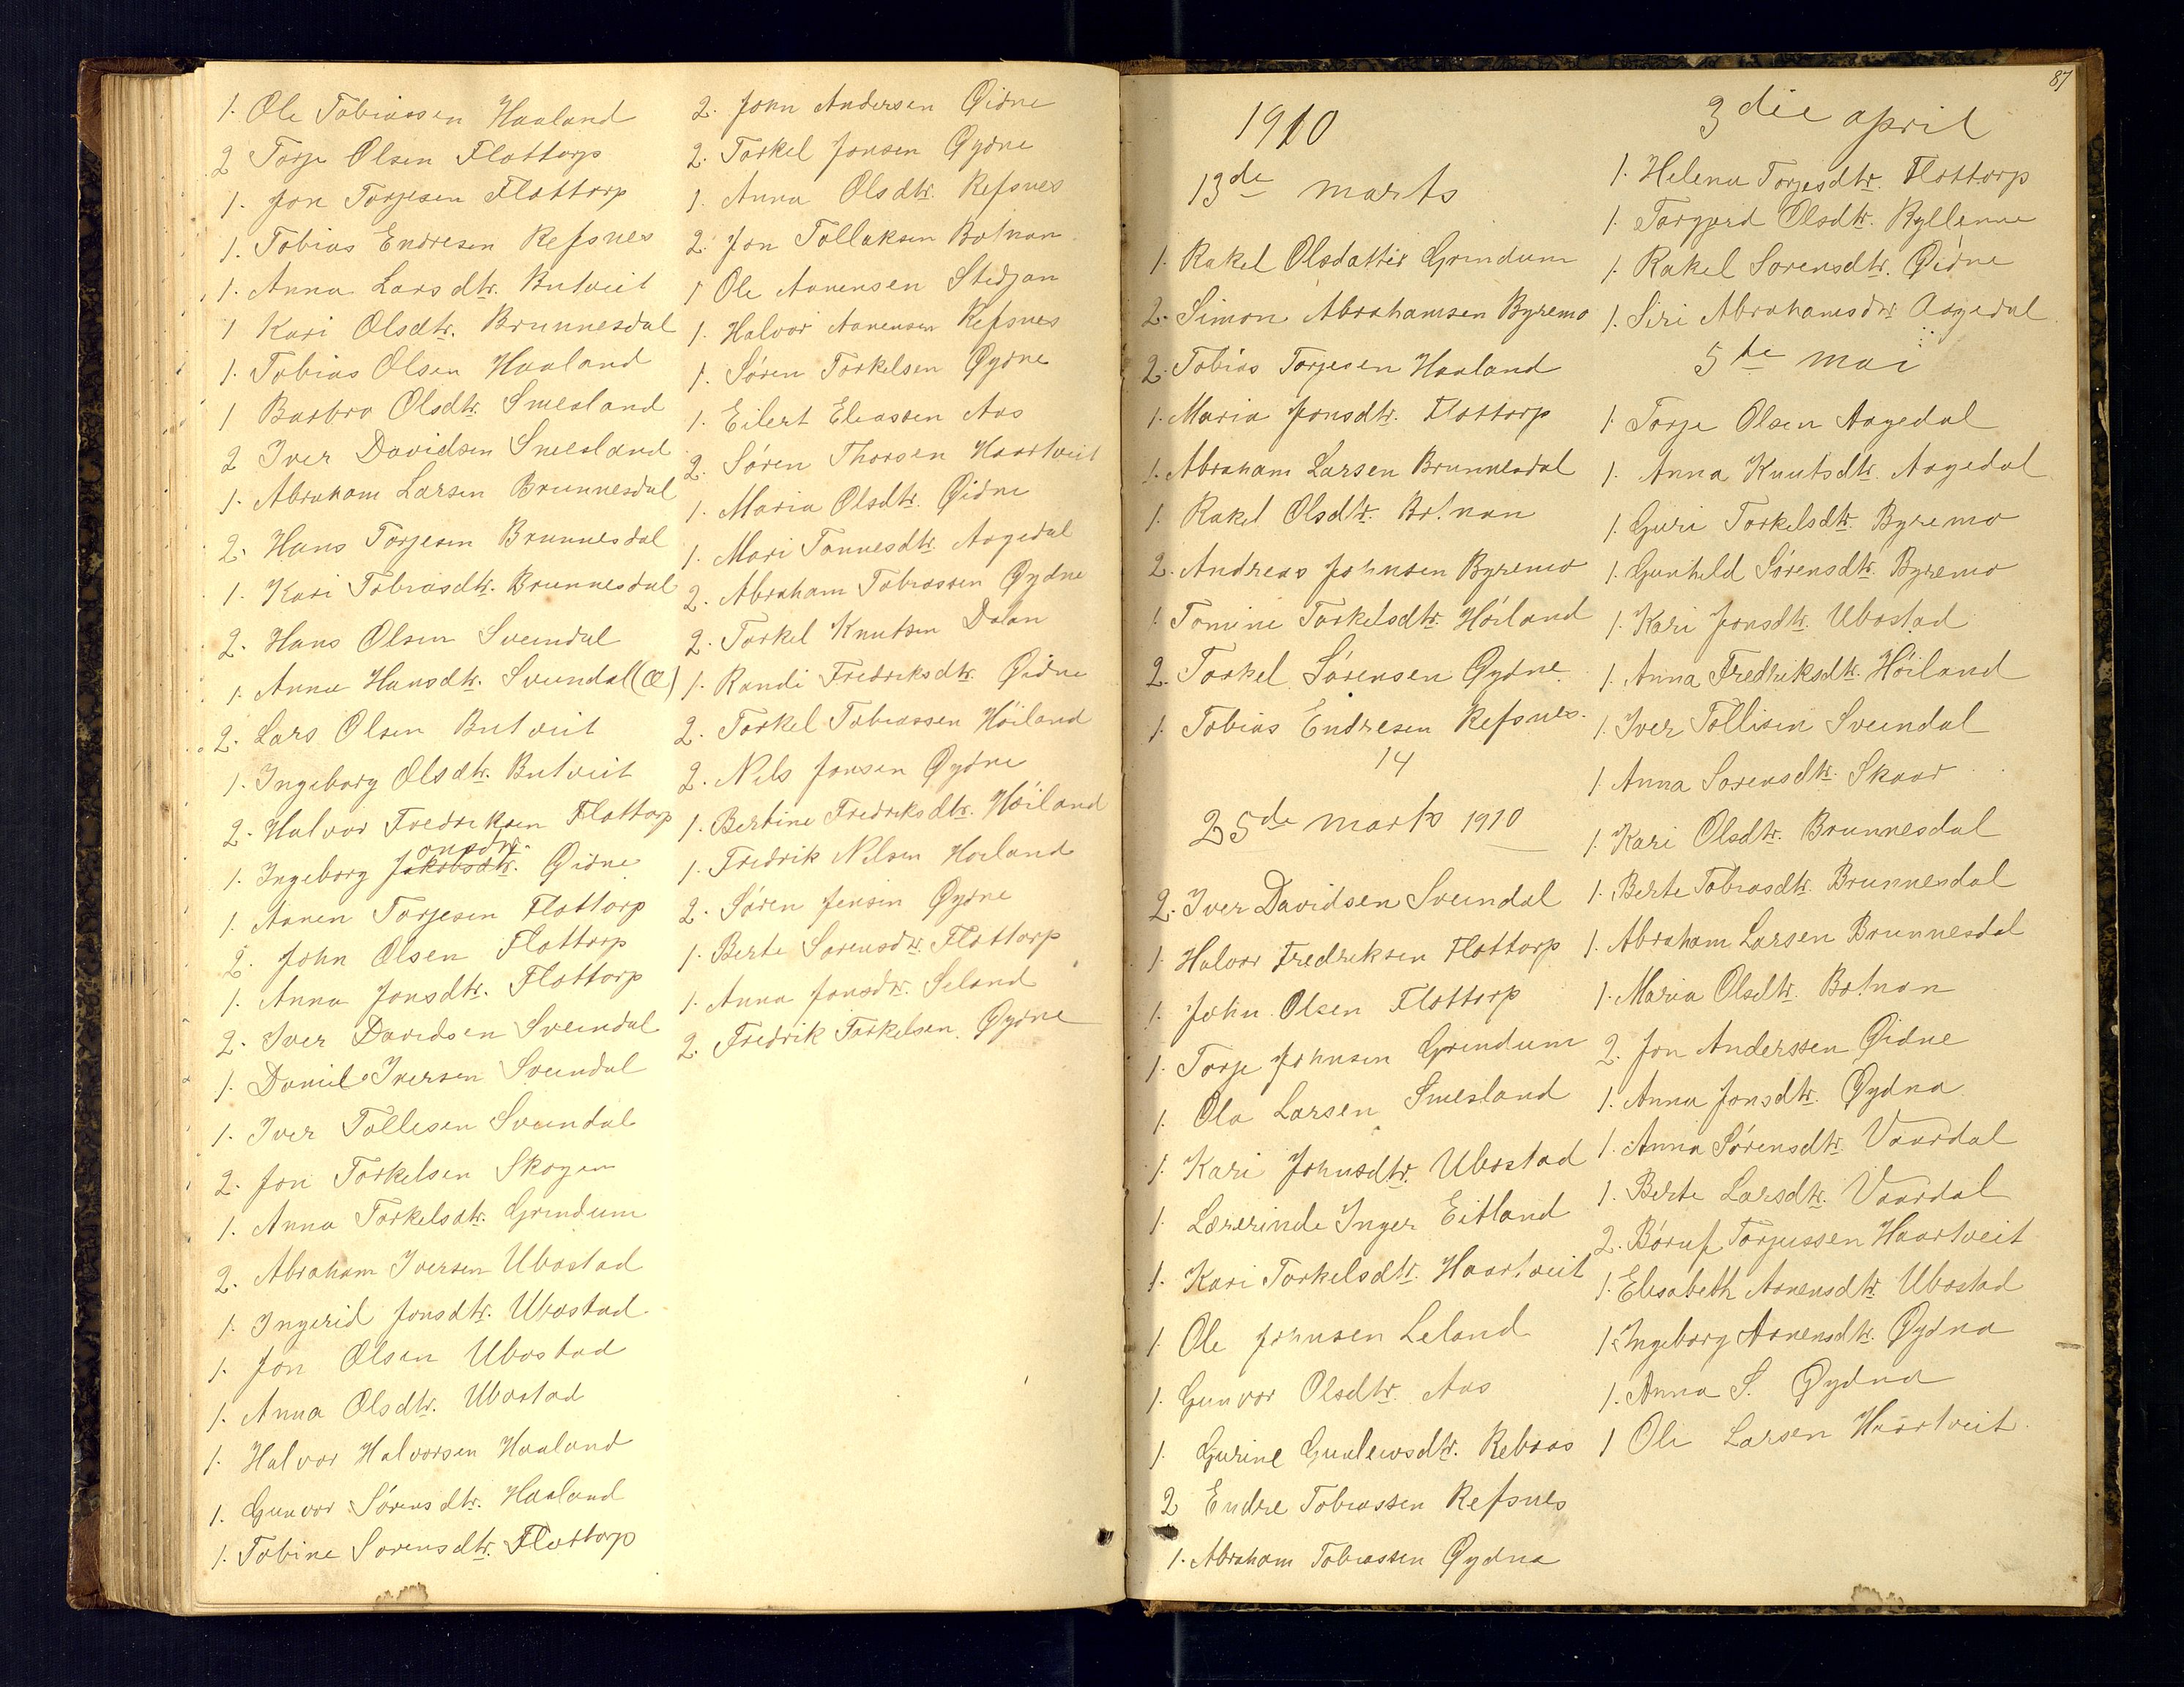 1. Ole Tobiassen Haaland
2 Torje Olsen Flottorp
1. Jon Torjesen Flottorp
1. Tobias Endresen Refsnes
1. Anna Larsdtr. Butveit
1 Kari Olsdtr. Brunnesdal
1. Tobias Olsen Haaland
1 Barbro Olsdtr. Smesland
2 Iver Davidsen Smesland
1. Abraham Larsen Brunnesdal
2. Hans Torjesen Brunnesdal
1. Kari Tobiasdtr. Brunnesdal
2. Hans Olsen Sveindal
1. Anna Hansdtr. Sveindal (Æ)
2. Lars Olsen Butveit
1. Ingeborg Olsdtr. Butveit
2. Halvor Fredriksen Flottorp
onsdtr.
1. Ingeborg Jakobsdtr. Øidne
1. Aanen Torjesen Flottorp
2. John Olsen Flottorp
1. Anna Jonsdtr. Flottorp
2. Iver Davidsen Sveindal
1. Daniel Iversen Sveindal
1. Iver Tollesen Sveindal
2. Jon Torkelsen Skogen
1. Anna Torkelsdtr. Grindum
2. Abraham Iversen Ubostad
1. Ingerid Jonsdtr. Ubostad
1. Jon Olsen Ubostad
1. Anna Olsdtr. Ubostad
1. Halvor Halvorsen Haaland
1. Gunvor Sørensdtr. Haaland
1. Tobine Sorensdtr. Flottorp
2. John Andersen Øidne
2. Torkel Jonsen Øydne
1. Anna Olsdtr. Refsnes
2. Jon Tollaksen Botnan
1 Ole Aanensen Stedjan
1. Halvor Aanensen Refsnes
1. Søren Torkelsen Øydne
1. Eilert Eliassen Aas
2. Søren Thorsen Haartveit
1. Maria Olsdtr. Øidne
1. Mari Tønnesdtr. Aagedal
2. Abraham Tobiassen Øydne
2. Torkel Knutsen Dalan
1. Randi Fredriksdtr. Øidne
2. Torkel Tobiassen Höiland
2. Nils Jonsen Øydne
1. Bertine Fredriksdtr. Höiland
1. Fredrik Nilsen Hoiland
2. Søren Jensen Øydne
1. Berte Sorensdtr. Flottorp
1. Anna Jonsdtr. Seland
2. Fredrik Torkelsen Øydne
87
1910
13de marts
1. Rakel Olsdatter Grindum
2. Simon Abrahamsen Byremo
2. Tobias Torjesen Haaland
1. Maria Jonsdtr. Flottorp
1. Abraham Larsen Brunnesdal
1. Rakel Olsdtr. Botnan
2. Andreas Johnsen Byremo
1 Tomine Torkelsdtr. Höiland
2. Torkel Sörensen Øydne.
1. Tobias Endresen Refsnes.
14
25de marts 1910
2. Iver Davidsen Sveindal
1. Halvor Fredriksen Flottorp
1. John Olsen Flottorp
1. Torje Johnsen Grindum
1. Ola Larsen Smesland
1. Kari Johnsdtr. Ubostad
1. Lærerinde Inger Eitland
1. Kari Torkelsdtr. Haartveit
1. Ole Johnsen Leland
1. Gunvor Olsdtr. Aas
1. Gurine Gunlewsdtr. Rebaas
2 Endre Tobiassen Refsnes
1. Abraham Tobiassen Øydna
3die april
1. Helena Torjesdtr. Flottorp
1. Torgjerd Olsdtr. Kyllenne
1. Rakel Sorensdtr. Øidne
1. Siri Abrahamsdtr Aagedal
5de mai
1. Torje Olsen Aagedal
1. Anna Knutsdtr. Aagedal
1. Guri Torkelsdtr. Byremo
1. Gunhild Sörensdtr. Byremo
1. Kari Jonsdtr. Ubostad
1. Anna Fredriksdtr. Höiland
1. Iver Tollisen Sveindal
1. Anna Sorensdtr. Skaar
1. Kari Olsdtr. Brunnesdal
1. Berte Tobiasdtr. Brunnesdal
1. Abraham Larsen Brunnesdal
1. Maria Olsdtr. Botnan
2. Jon Anderssen Øidne
1. Anna Jonsdtr. Øydna
1. Anna Sörensdtr. Vaardal
1. Berte Larsdtr. Vaardal
2. Böruf Torjussen Haartveit
1. Elisabeth Aanensdtr. Ubostad
1. Ingeborg Aanensdtr. Øydna
1. Anna S. Øydna
1 Ole Larsen Haartveit